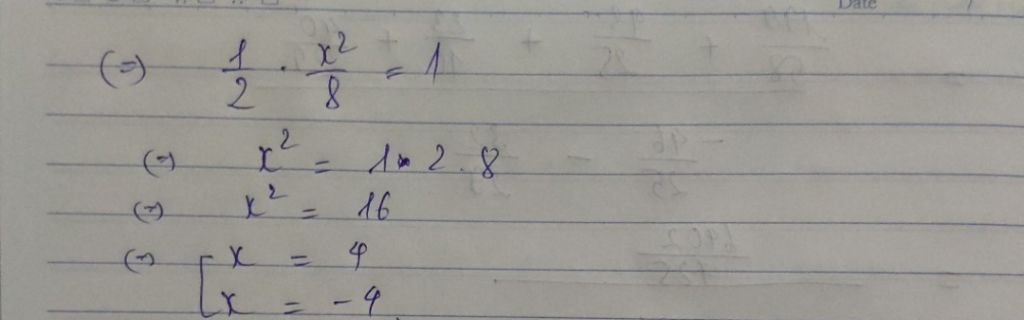 Date
(=) 1/2 . x²/8 = 1
(=) x² = 1 . 2 . 8
(=) x² = 16
(=) [ x = 4
x = -4